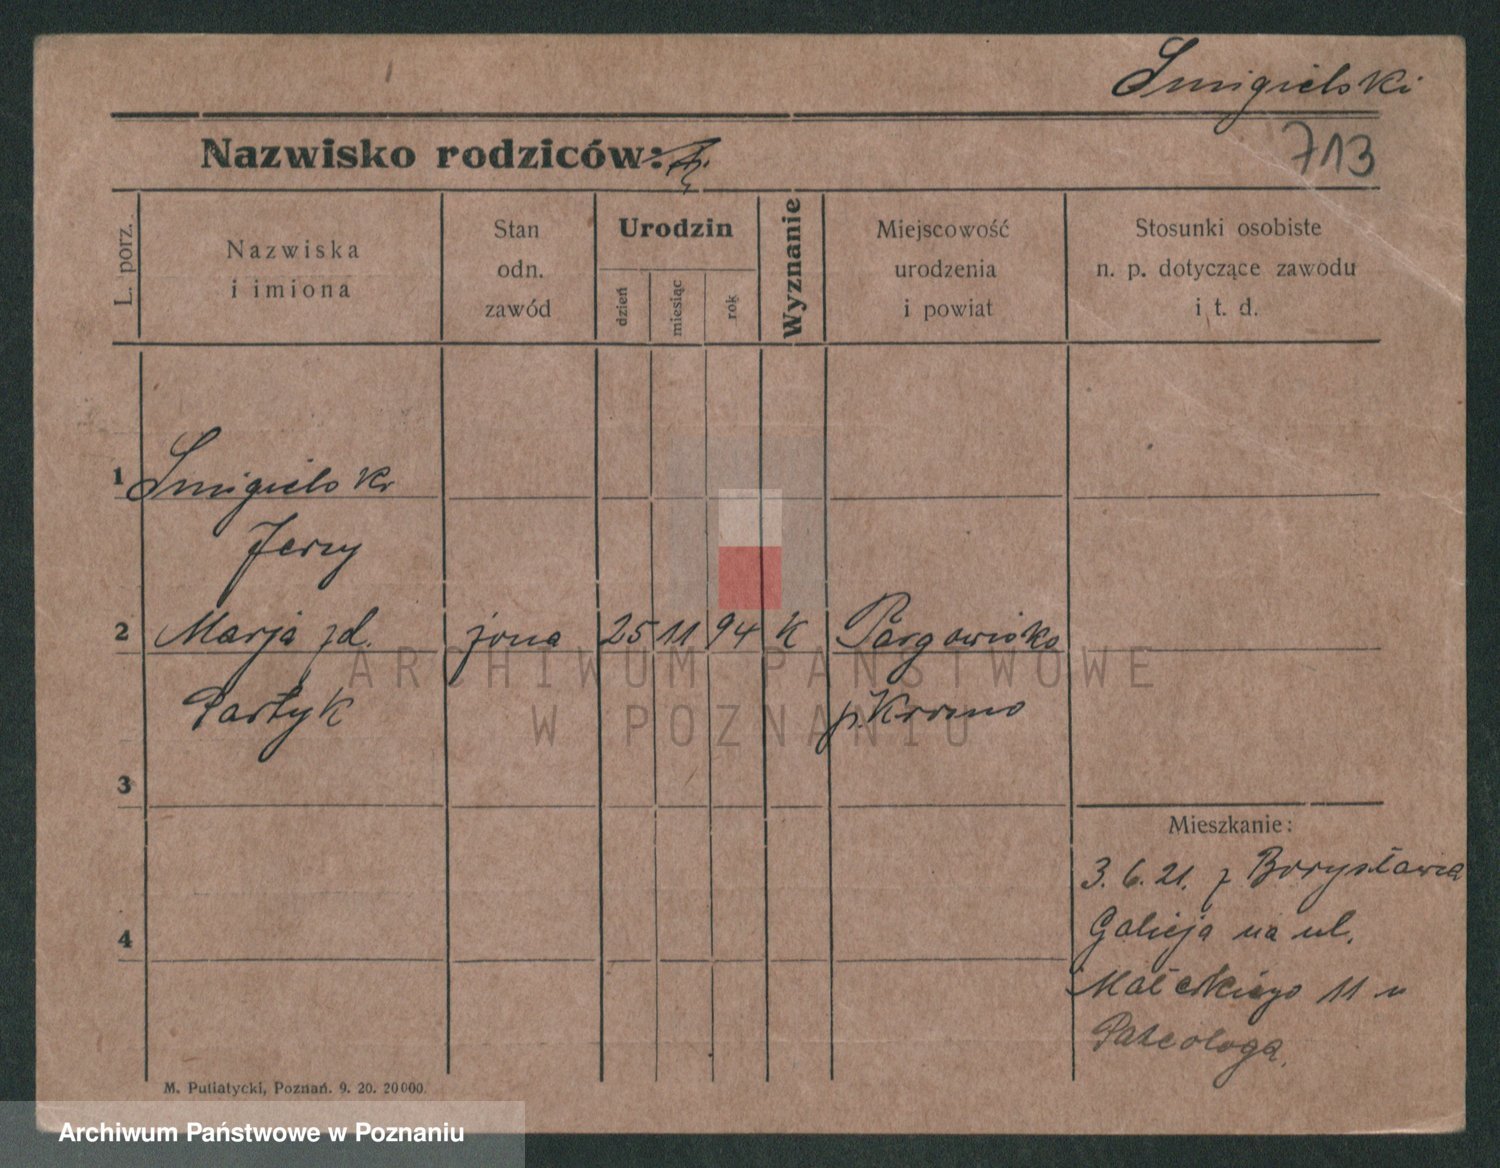 Smigielski
713
Nazwisko rodziców:
L. porz.
Nazwiska
i imiona
Stan
odn.
zawód
Urodzin
dzień
miesiąc
rok
Wyznanie
Miejscowość
urodzenia
i powiat
Stosunki osobiste
n. p. dotyczące zawodu
i t. d.
1 Smigielski
Jerzy
2 Marja zd. żona 25 11 94 K Targowiska
Partyk p. Krosno
3
Mieszkanie:
3. 6. 21. z Borysławia
Galicja na ul.
4
Małeckiego 11 u
M. Putiatycki, Poznań. 9. 20. 20000.
ARCHIWUM PAŃSTWOWE
W POZNANIU
Archiwum Państwowe w Poznaniu